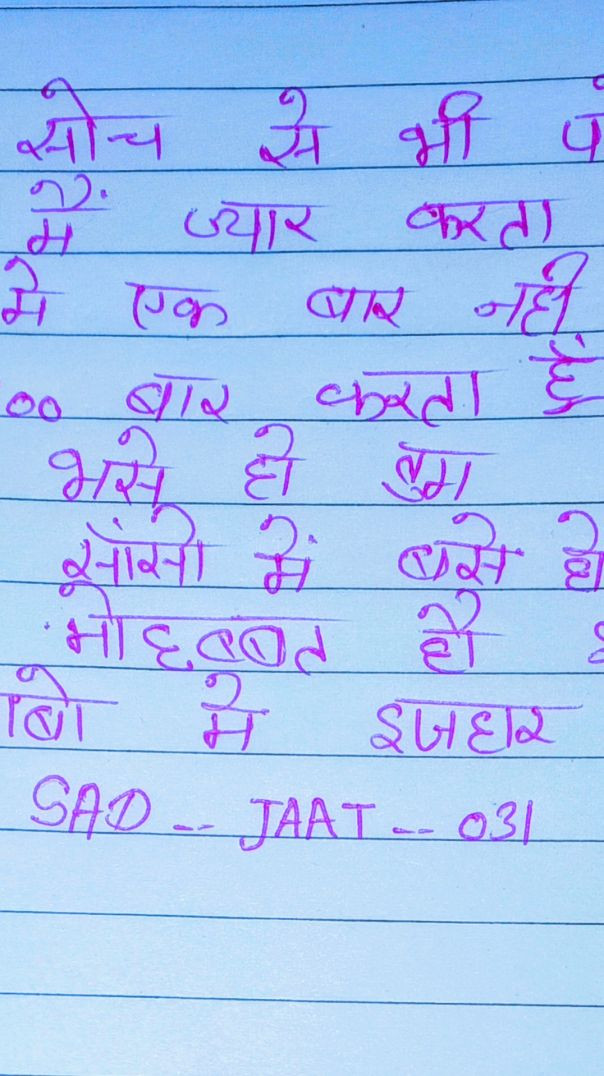 सोच से भी
में ज्यार करता
मे एक बार नही
00 बार करता हैं
भसे हो तुम
साँसो में बसे हो
मोहब्बत हो
बो मे इजहार
SAD -- JAAT -- 031